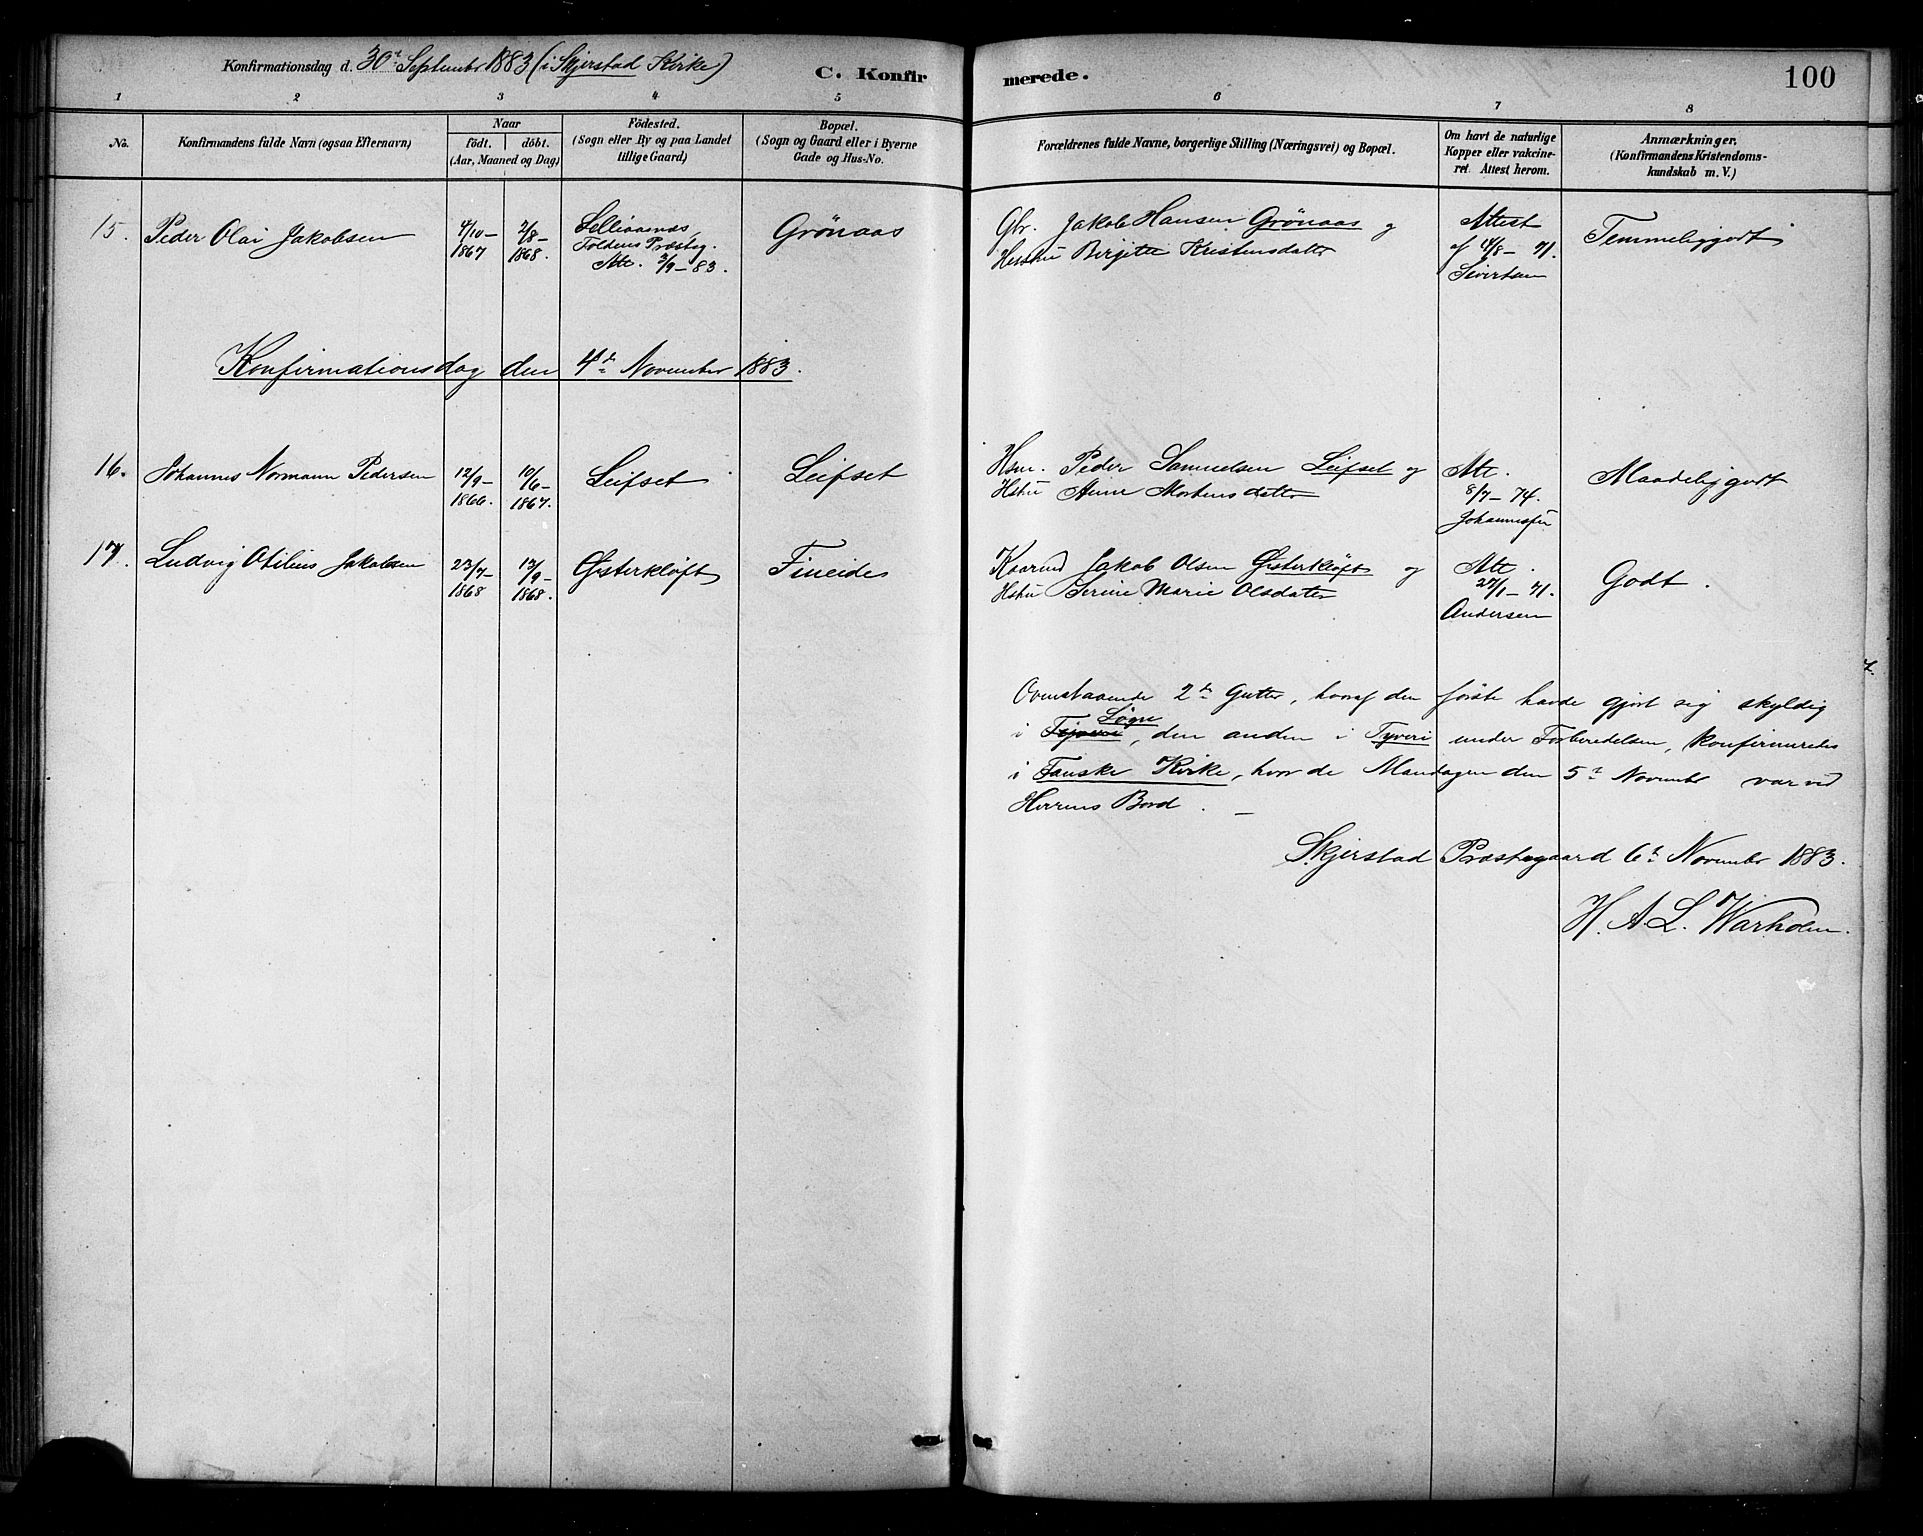 Konfirmationsdag d. 30t September 1883 (i Skjerstad Kirke)
C. Konfirmerede.
100
1 2 3 4 5 6 7 8
No.
Konfirmandens fulde Navn (ogsaa Efternavn)
Naar
födt. döbt.
(Aar, Maaned og Dag)
Födested.
(Sogn eller By og paa Landet
tillige Gaard)
Bopæl.
(Sogn og Gaard eller i Byerne
Gade og Hus-No.
Forældrenes fulde Navne, borgerlige Stilling (Næringsvei) og Bopæl.
Om havt de naturlige
Kopper eller vakcine-
ret. Attest herom.
Anmærkninger.
(Konfirmandens Kristendoms-
kundskab m. V.)
15. Peder Olai Jakobsen
4/10 –
1867
2/8 –
1868.
Foldens Præsteg.
Att. 3/9 – 83.
Grönaas
Gbr. Jakob Hansen Grönaas og
Hustru Birgitte Kristensdatter
Attest
af 4/8 – 71.
Sivertsen
Temmelig godt
Konfirmationsdag den 4de November 1883.
16. Johannes Normann Pedersen
12/9 –
1866.
10/6 –
1867.
Leifset
Leifset
Hsm. Peder Samuelsen Leifset og
Hstru Anne Mortensdatter
Att.
8/7 – 74.
Maadelig godt
17. Ludvig Otilius Jakobsen
23/7 –
1868
13/9 –
1868.
Østerkløft
Fineide
Kaarmd Jakob Olsen Østerkløft og
Hstru Serine Marie Olsdatter
Att.
27/1 – 71.
Andersen
Godt.
Ovenstaaende 2de Gutter, hvoraf den förste havde gjort sig skyldig
Løgn
i Tyveri, den anden i Tyveri under Forberedelsen, konfirmeredes
i Fauske Kirke, hvor de Mandagen den 5te November var ved
Herrens Bord. –
Skjerstad Præstegaard 6t November 1883.
H. A. L. Warholm.